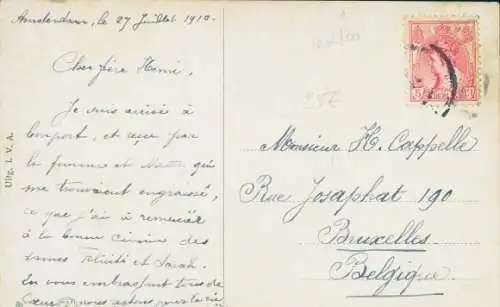 Amsterdam, le 27 Juillet 1910.
Cher frère Henri.
Je suis arrivé à
bon port, et reçu par
la femme et qui
me trouvaient engraissé,
ce que j'ai à remercier
à la bonne cuisine des
dames Félicité et Sarah.
En vous embrassant tous de
cœur, nous
25€
Monsieur H. Cappelle
Rue Josaphat 190
Bruxelles
Belgique
Uitg. I. V. A.
5